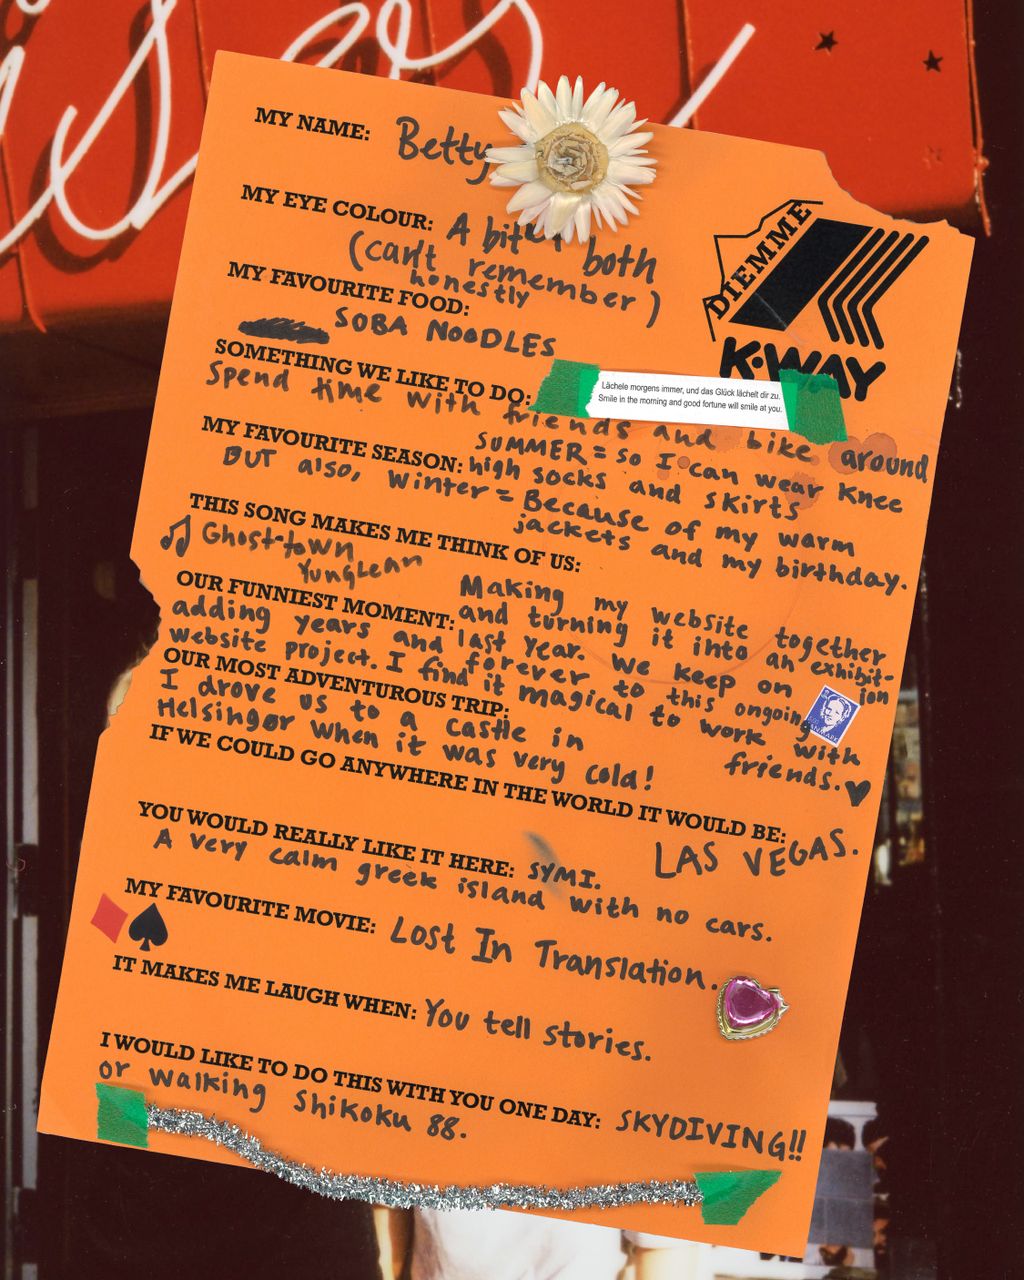 MY NAME: Betty
MY EYE COLOUR: A bit of both
(can't remember
honestly)
MY FAVOURITE FOOD:
SOBA NOODLES
SOMETHING WE LIKE TO DO:
Spend time with friends and bike around
MY FAVOURITE SEASON: SUMMER = so I can wear knee
high socks and skirts
BUT also, winter = Because of my warm
jackets and my birthday.
THIS SONG MAKES ME THINK OF US:
Ghost-town
YungLean
OUR FUNNIEST MOMENT: Making my website together
and turning it into an exhibit-
ion
last year. We keep on
adding years and forever to this ongoing
website project. I find it magical to work with
friends.
OUR MOST ADVENTUROUS TRIP:
I drove us to a castle in
Helsingør when it was very cold!
IF WE COULD GO ANYWHERE IN THE WORLD IT WOULD BE:
LAS VEGAS.
YOU WOULD REALLY LIKE IT HERE: SYMI.
A very calm greek island with no cars.
MY FAVOURITE MOVIE: Lost In Translation.
IT MAKES ME LAUGH WHEN: You tell stories.
I WOULD LIKE TO DO THIS WITH YOU ONE DAY: SKYDIVING!!
or walking Shikoku 88.
DIEMME
K-WAY
Lächele morgens immer, und das Glück lächelt dir zu.
Smile in the morning and good fortune will smile at you.